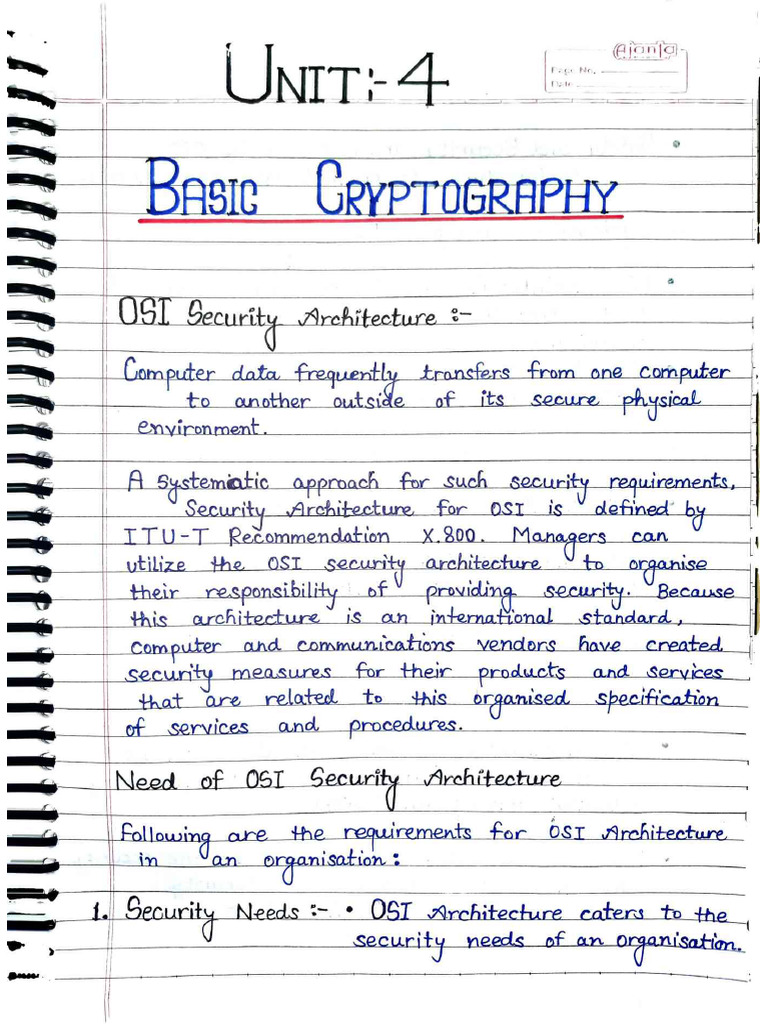 UNIT:- 4
Ajanta
Page No.
Date
BASIC CRYPTOGRAPHY
OSI Security Architecture :-
Computer data frequently transfers from one computer
to another outside of its secure physical
environment.
A Systematic approach for such security requirements,
Security Architecture for OSI is defined by
ITU-T Recommendation X.800. Managers can
utilize the OSI security architecture to organise
their responsibility of providing security. Because
this architecture is an international standard,
computer and communications vendors have created
security measures for their products and services
that are related to this organised specification
of services and procedures.
Need of OSI Security Architecture
Following are the requirements for OSI Architecture
in an organisation :
1. Security Needs :- • OSI Architecture caters to the
security needs of an organisation.